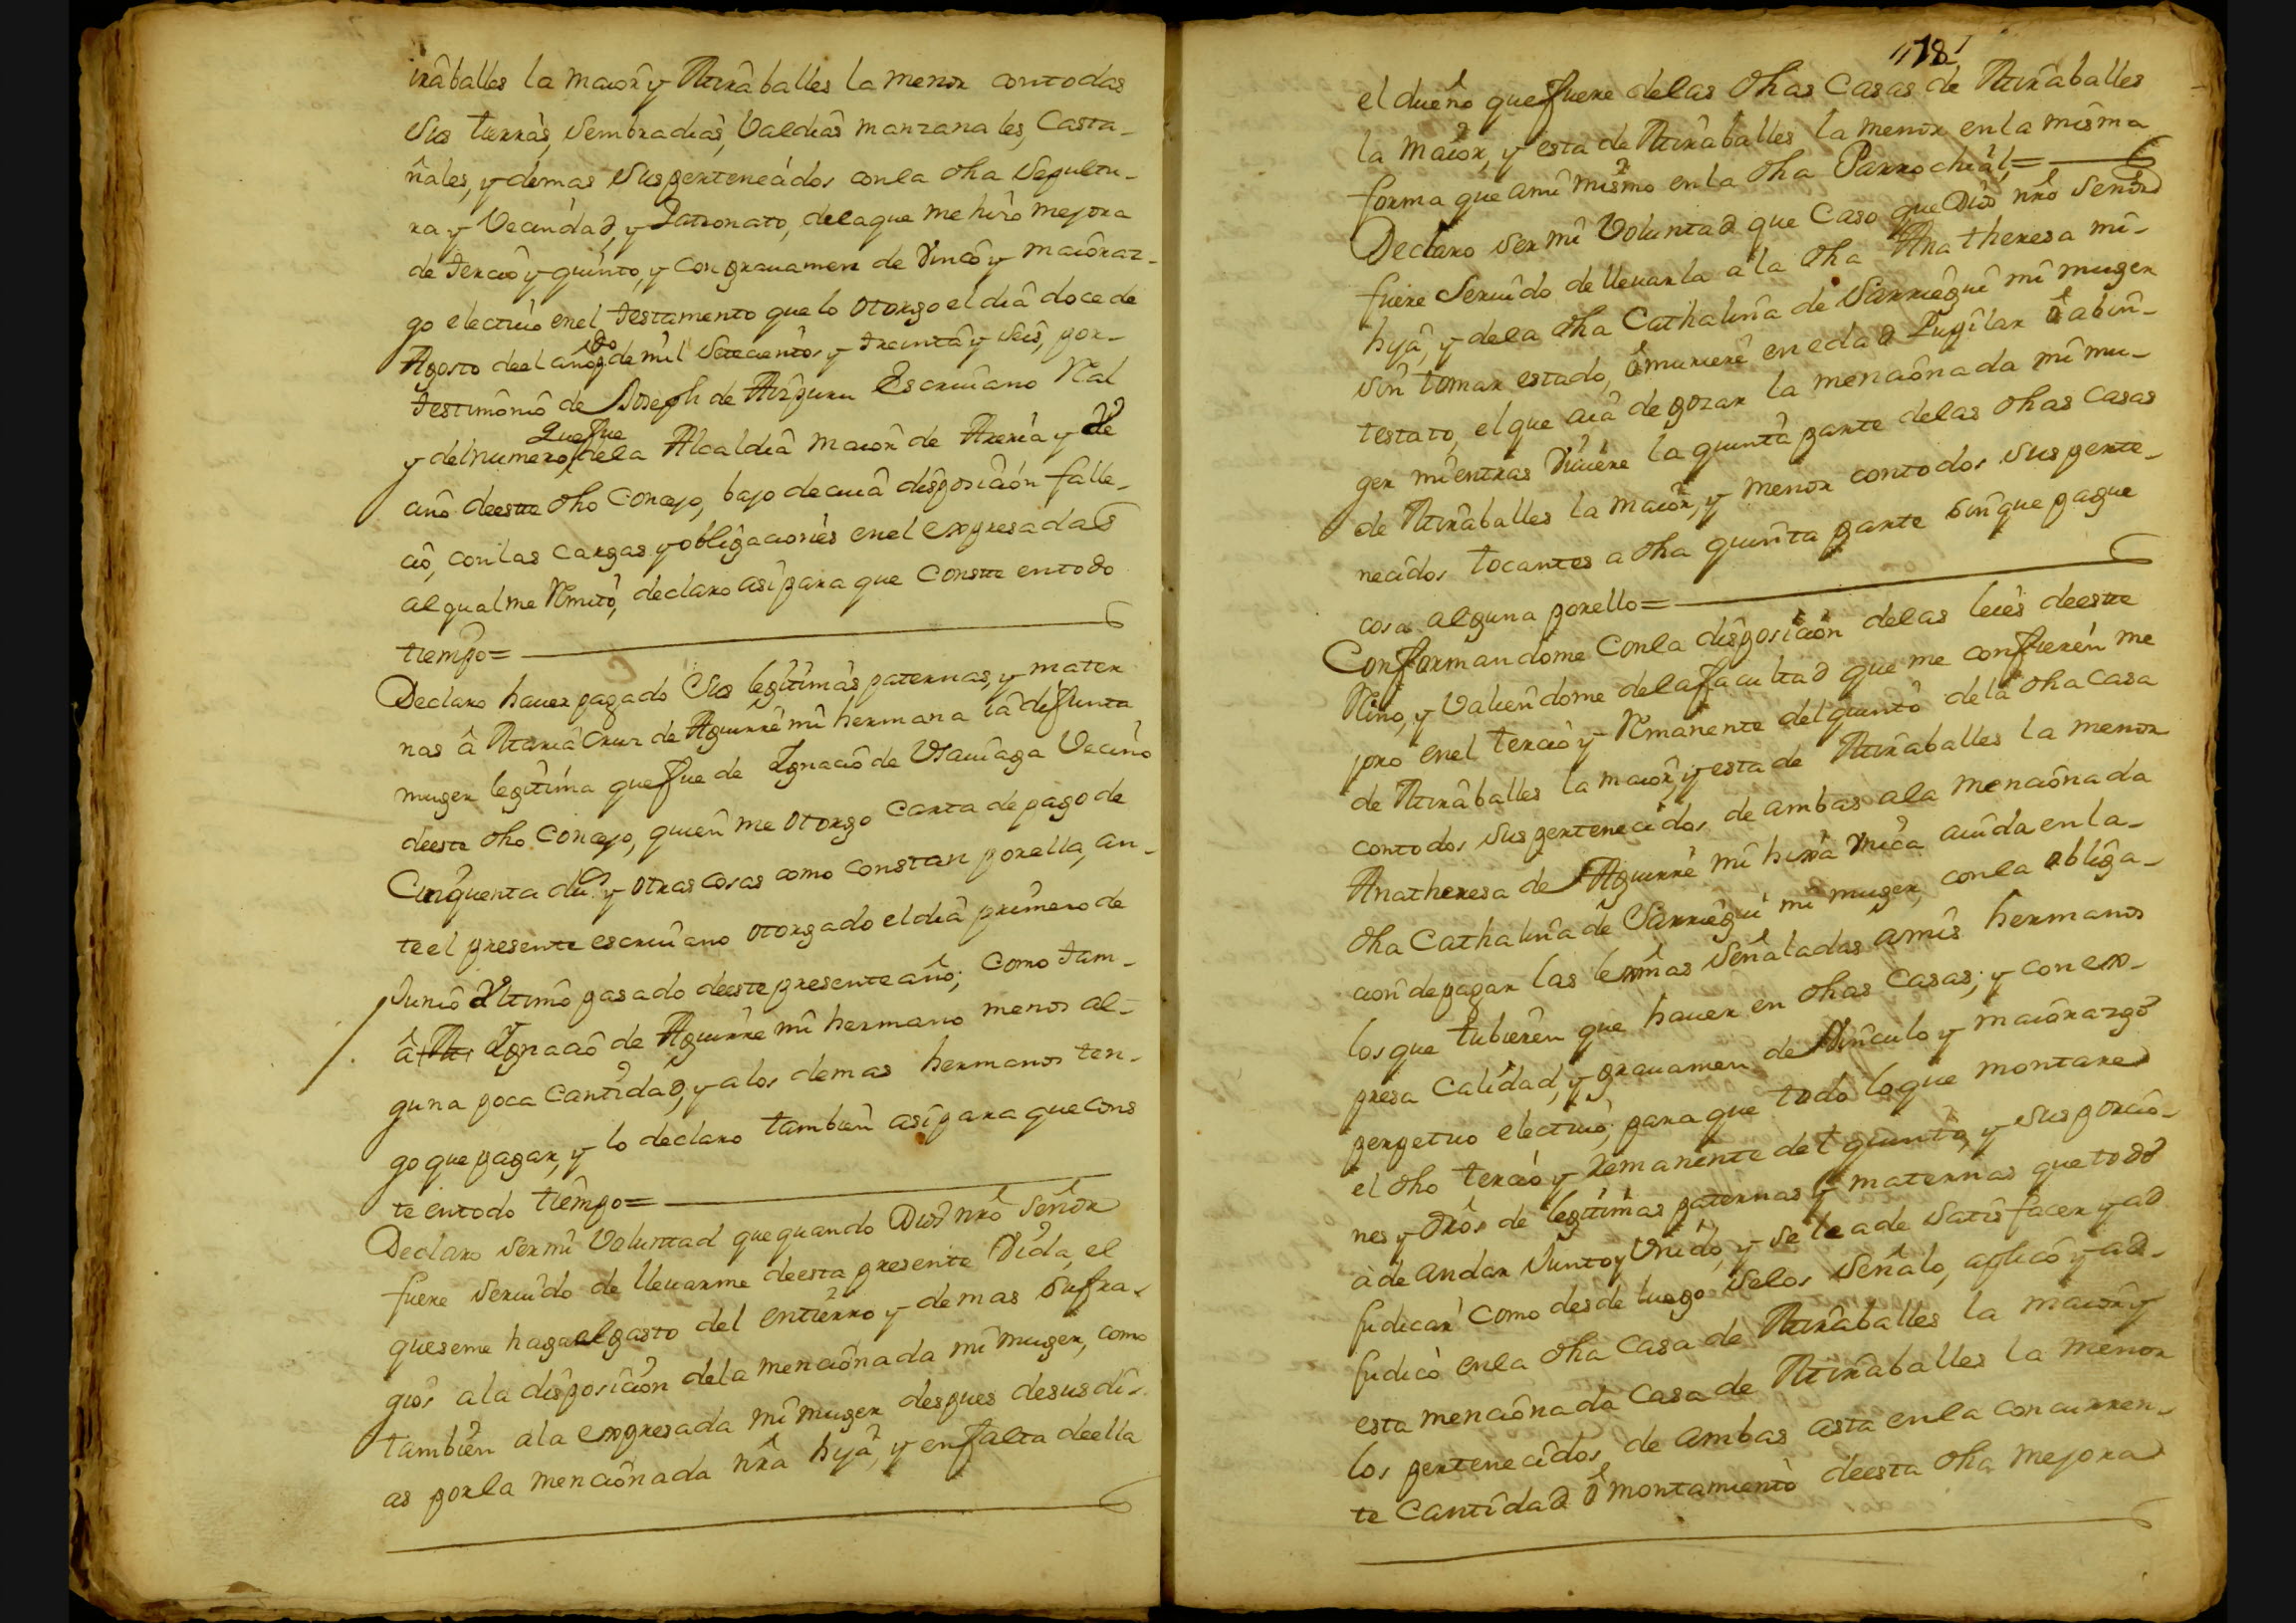 iraballes la maior y Miraballes la menor con todas
sus tierras, sembradias, valdias manzanales, Casta-
ñales, y demas sus pertenecidos con la dha sepultu-
ra y vecindad, y Patronato, de la que me hizo mejora
de tercio y quinto, y con gravamen de vinco y maioraz-
go electivo en el testamento que lo otorgo el dia doce de
Agosto de el año pdo de mil setecientos y treinta y seis, por
testimonio de Joseph de Aizpuru Escrivano Real
y del numero que fue de la Alcaldia maior de Areria y ve
cino de este dho Concejo, bajo de cuia disposicion falle-
cio, con las cargas y obligaciones en el expresadas
al qual me Remito, declaro asi para que conste en todo
tiempo=
Declaro haver pagado sus legitimas paternas, y mater
nas â Maria Cruz de Aguirre mi hermana ia difunta
muger legitima que fue de Ignacio de Vsaviaga Vecino
de este dho Concejo, quien me otorgo carta de pago de
Cinquenta dus. y otras cosas como constan por ella, an-
te el presente escrivano otorgado el dia primero de
Junio vltimo pasado de este presente año; como tam-
â Ignacio de Aguirre mi hermano menor al-
guna poca cantidad, y a los demas hermanos ten-
go que pagar, y lo declaro tambien asi para que cons
te en todo tiempo=
Declaro ser mi voluntad que quando Dios nro señor
fuere servido de llevarme de esta presente vida, el
que se me haga el gasto del entierro y demas sufra-
gios a la disposicion de la mencionada mi muger, como
tambien a la expresada mi muger despues de sus di-
as por la mencionada nra hija, y en falta de ella
118
el dueño que fuere de las dhas Casas de Miraballes
la maior, y esta de Miraballes la menor en la misma
forma que a mi mismo en la dha Parrochial=
Declaro ser mi voluntad que caso que Dios nro señor
fuere servido de llevarla a la dha Ana theresa mi
hija, y de la dha Cathalina de Sarriegui mi muger
sin tomar estado, ô muriere en edad Pupilar ô abin-
testato, el que aia de gozar la mencionada mi mu-
ger mientras viviere la quinta parte de las dhas casas
de Miraballes la maior, y menor con todos sus perte-
necidos tocantes a dha quinta parte sin que pague
cosa alguna por ello=
Conformandome con la disposicion de las leies de este
Reino, y valiendome de la facultad que me confieren me
joro en el tercio y Remanente del quinto de la dha casa
de Miraballes la maior, y esta de Miraballes la menor
con todos sus pertenecidos de ambas a la mencionada
Ana theresa de Aguirre mi hija vnica avida en la
dha Cathalina de Sarriegui mi muger, con la obliga-
cion de pagar las lexmas señaladas a mis hermanos
los que tubieren que haver en dhas casas; y con ex-
presa calidad, y gravamen de vinculo y maiorazgo
perpetuo electivo, para que todo lo que montare
el dho tercio y remanente del quinto, y sus porcio-
nes y dros de legitimas paternas y maternas que todo
a de andar junto y vnido, y se le a de satisfacer y ad
judicar como desde luego se los señalo, aplico y ad-
judico en la dha casa de Miraballes la maior y
esta mencionada casa de Miraballes la menor
los pertenecidos de ambas asta en la concurren-
te cantidad ô montamiento de esta dha mejora